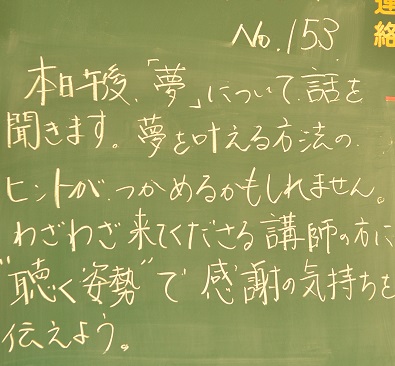 連絡
No.153
本日午後、「夢」について、話を
聞きます。夢を叶える方法の
ヒントが、つかめるかもしれません。
わざわざ来てくださる講師の方に
"聴く姿勢"で感謝の気持ちを
伝えよう。